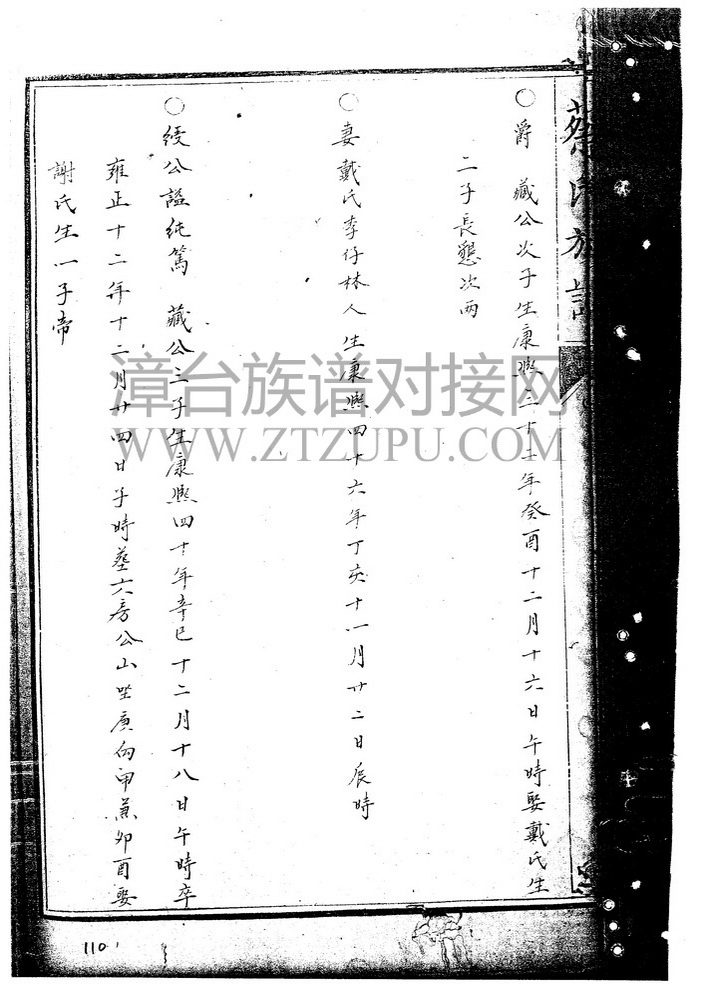 蔡氏族譜
○爵 藏公次子生康熙三十二年癸酉十二月十六日午時娶戴氏生
二子長懇次两
○妻戴氏李仔林人生康熙四十六年丁亥十一月廿二日辰時
○綬公謚純篤 藏公三子生康熙四十年辛巳十二月十八日午時卒
雍正十二年十二月廿四日子時墓六房公山坐庚向甲兼卯酉娶
謝氏生一子帝
漳台族谱对接网
WWW.ZTZUPU.COM
110